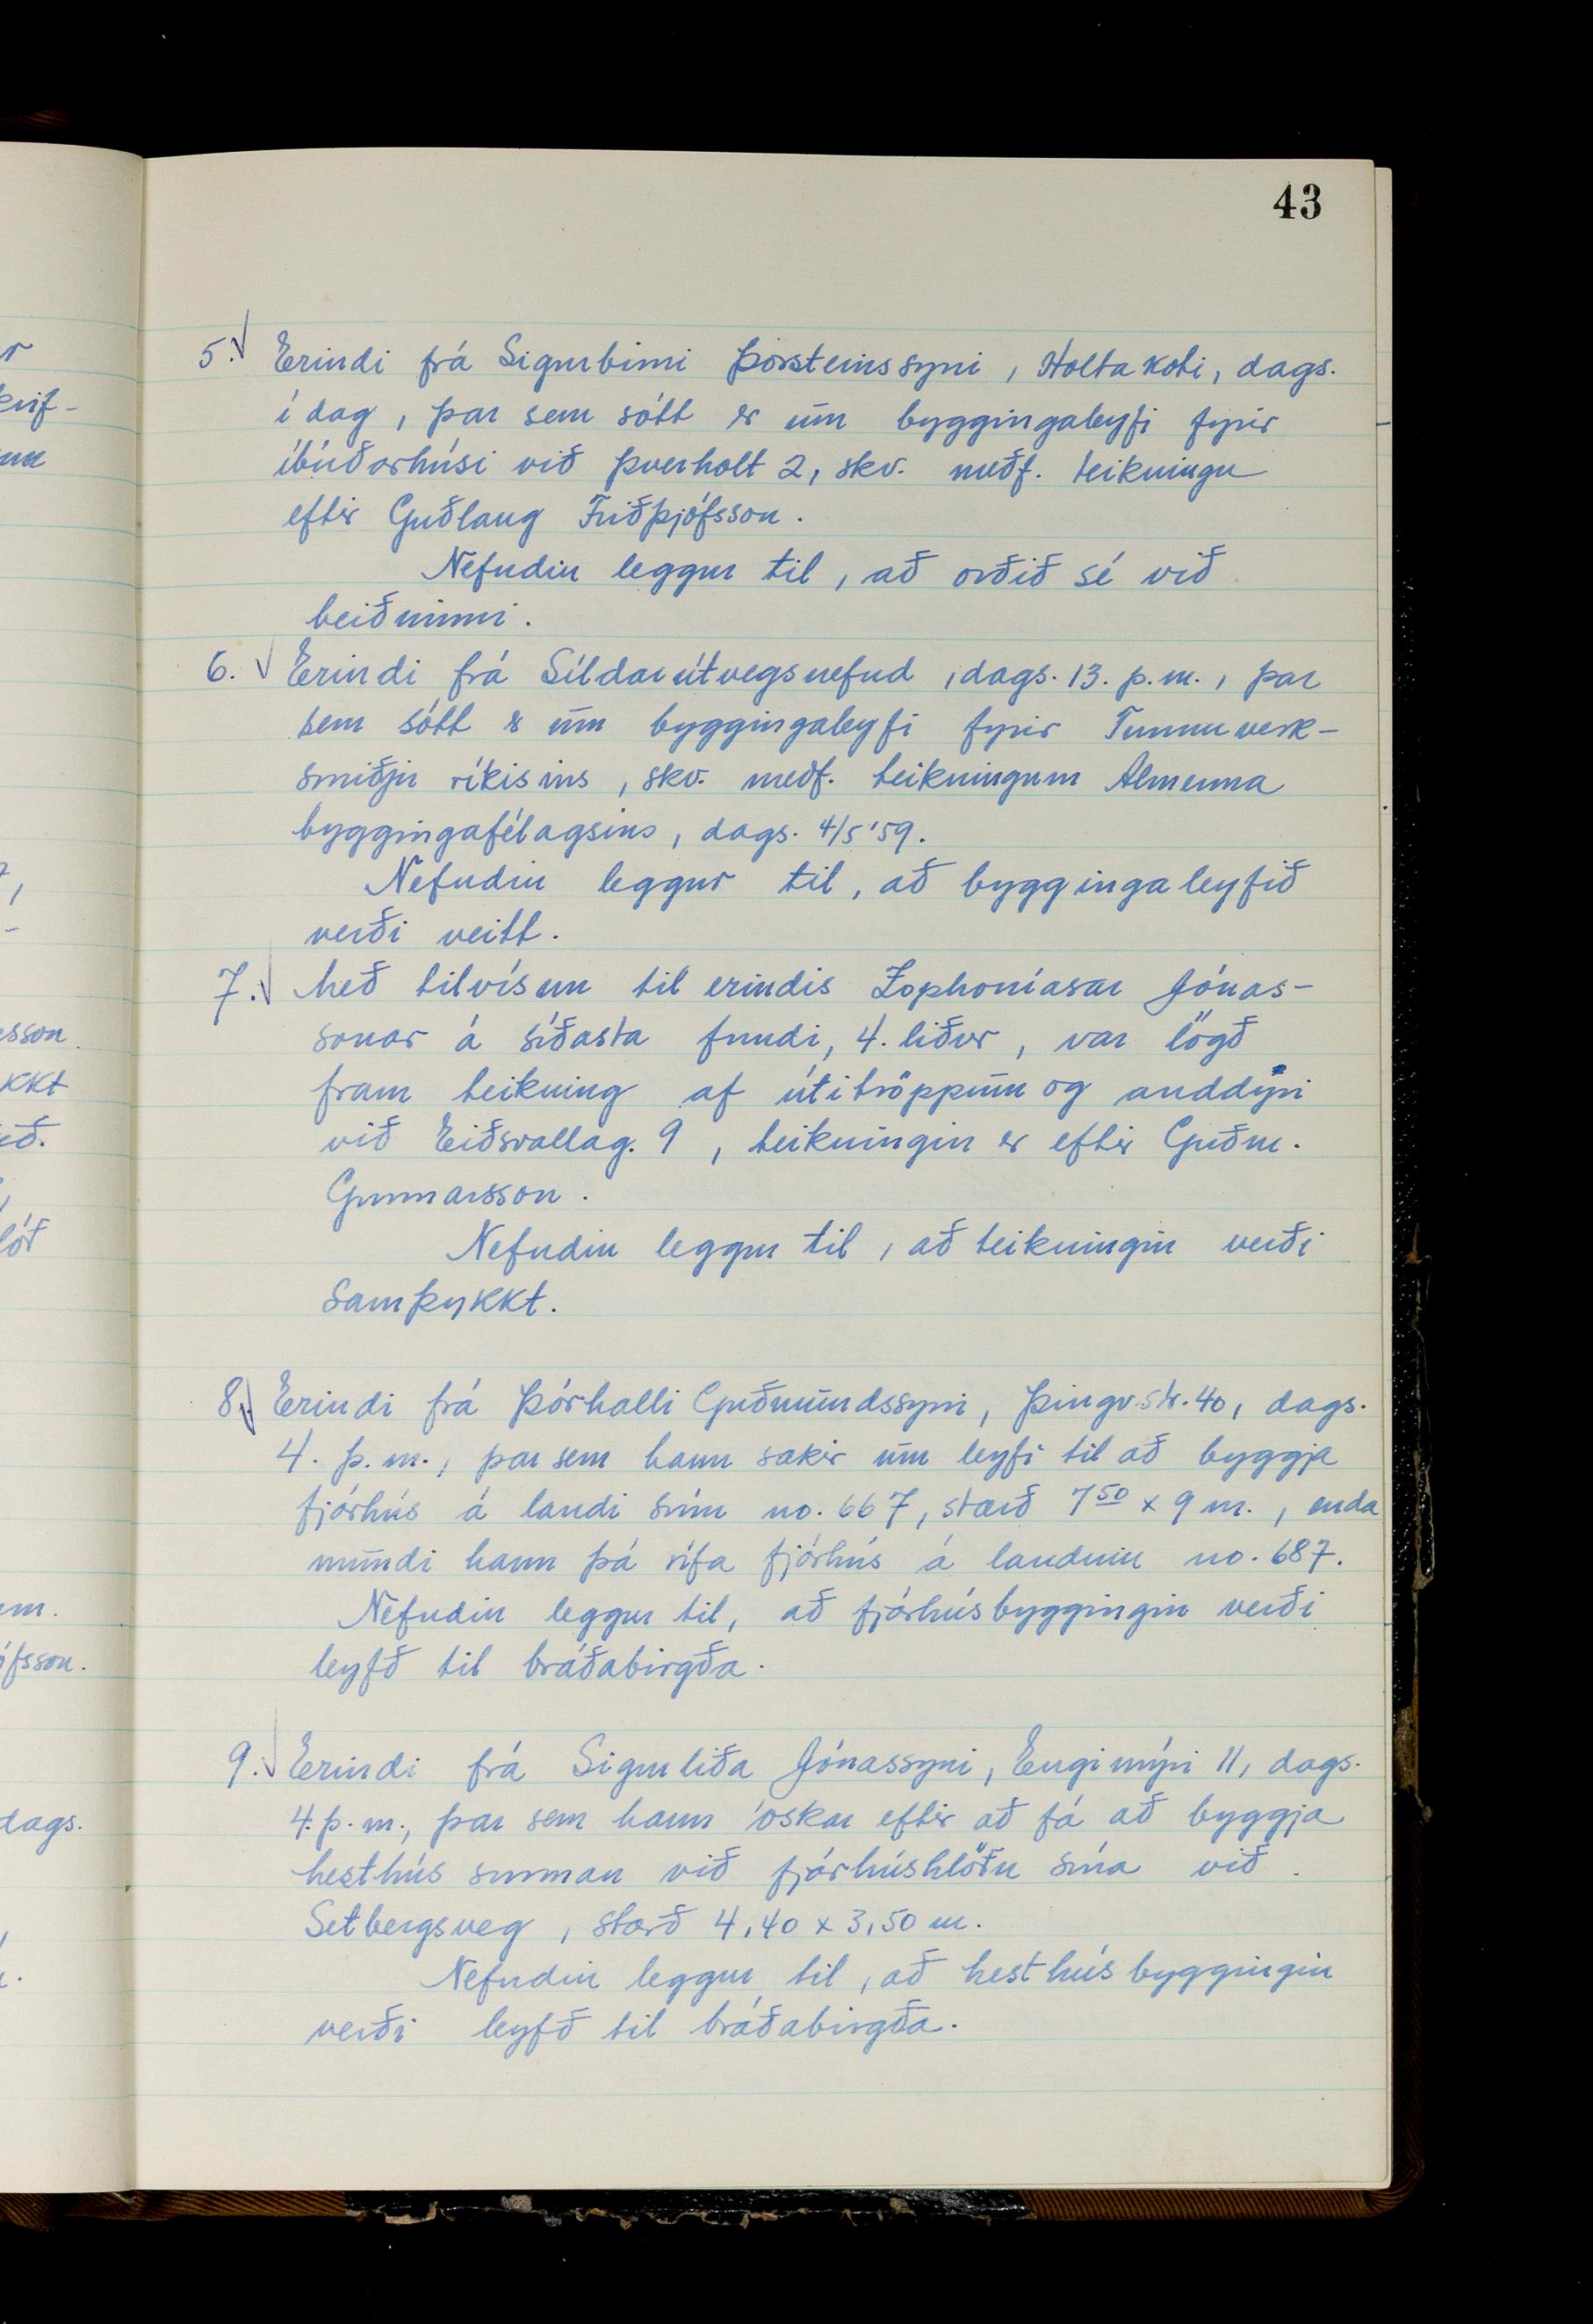 43
5. Erindi frá Sigurbirni Þorsteinssyni, Holtakoti, dags.
í dag, þar sem sótt er um byggingaleyfi fyrir
íbúðarhúsi við Þverholt 2, skv. meðf. teikningu
eftir Guðlaug Friðþjófsson.
Nefndin leggur til, að orðið sé við
beiðninni.
6. Erindi frá Síldarútvegsnefnd, dags. 13. þ.m., þar
sem sótt er um byggingaleyfi fyrir Tunnuverk-
smiðju ríkisins, skv. meðf. teikningum Almenna
byggingafélagsins, dags. 4/5 '59.
Nefndin leggur til, að byggingaleyfið
verði veitt.
7. Með tilvísun til erindis Zophoníasar Jónas-
sonar á síðasta fundi, 4. liður, var lögð
fram teikning af útitröppum og anddyri
við Eiðsvallag. 9, teikningin er eftir Guðm.
Gunnarsson.
Nefndin leggur til, að teikningin verði
samþykkt.
8. Erindi frá Þórhalli Guðmundssyni, Þingv.str. 40, dags.
4. þ.m., þar sem hann sækir um leyfi til að byggja
fjárhús á landi sínu no. 667, stærð 7 50 x 9 m., enda
mundi hann þá rífa fjárhús á landinu no. 687.
Nefndin leggur til, að fjárhúsbyggingin verði
leyfð til bráðabirgða.
9. Erindi frá Sigurliða Jónassyni, Engimýri 11, dags.
4. þ.m., þar sem hann óskar eftir að fá að byggja
hesthús sunnan við fjárhúshlöðu sína við
Setbergsveg, stærð 4,40 x 3,50 m.
Nefndin leggur til, að hesthúsbyggingin
verði leyfð til bráðabirgða.